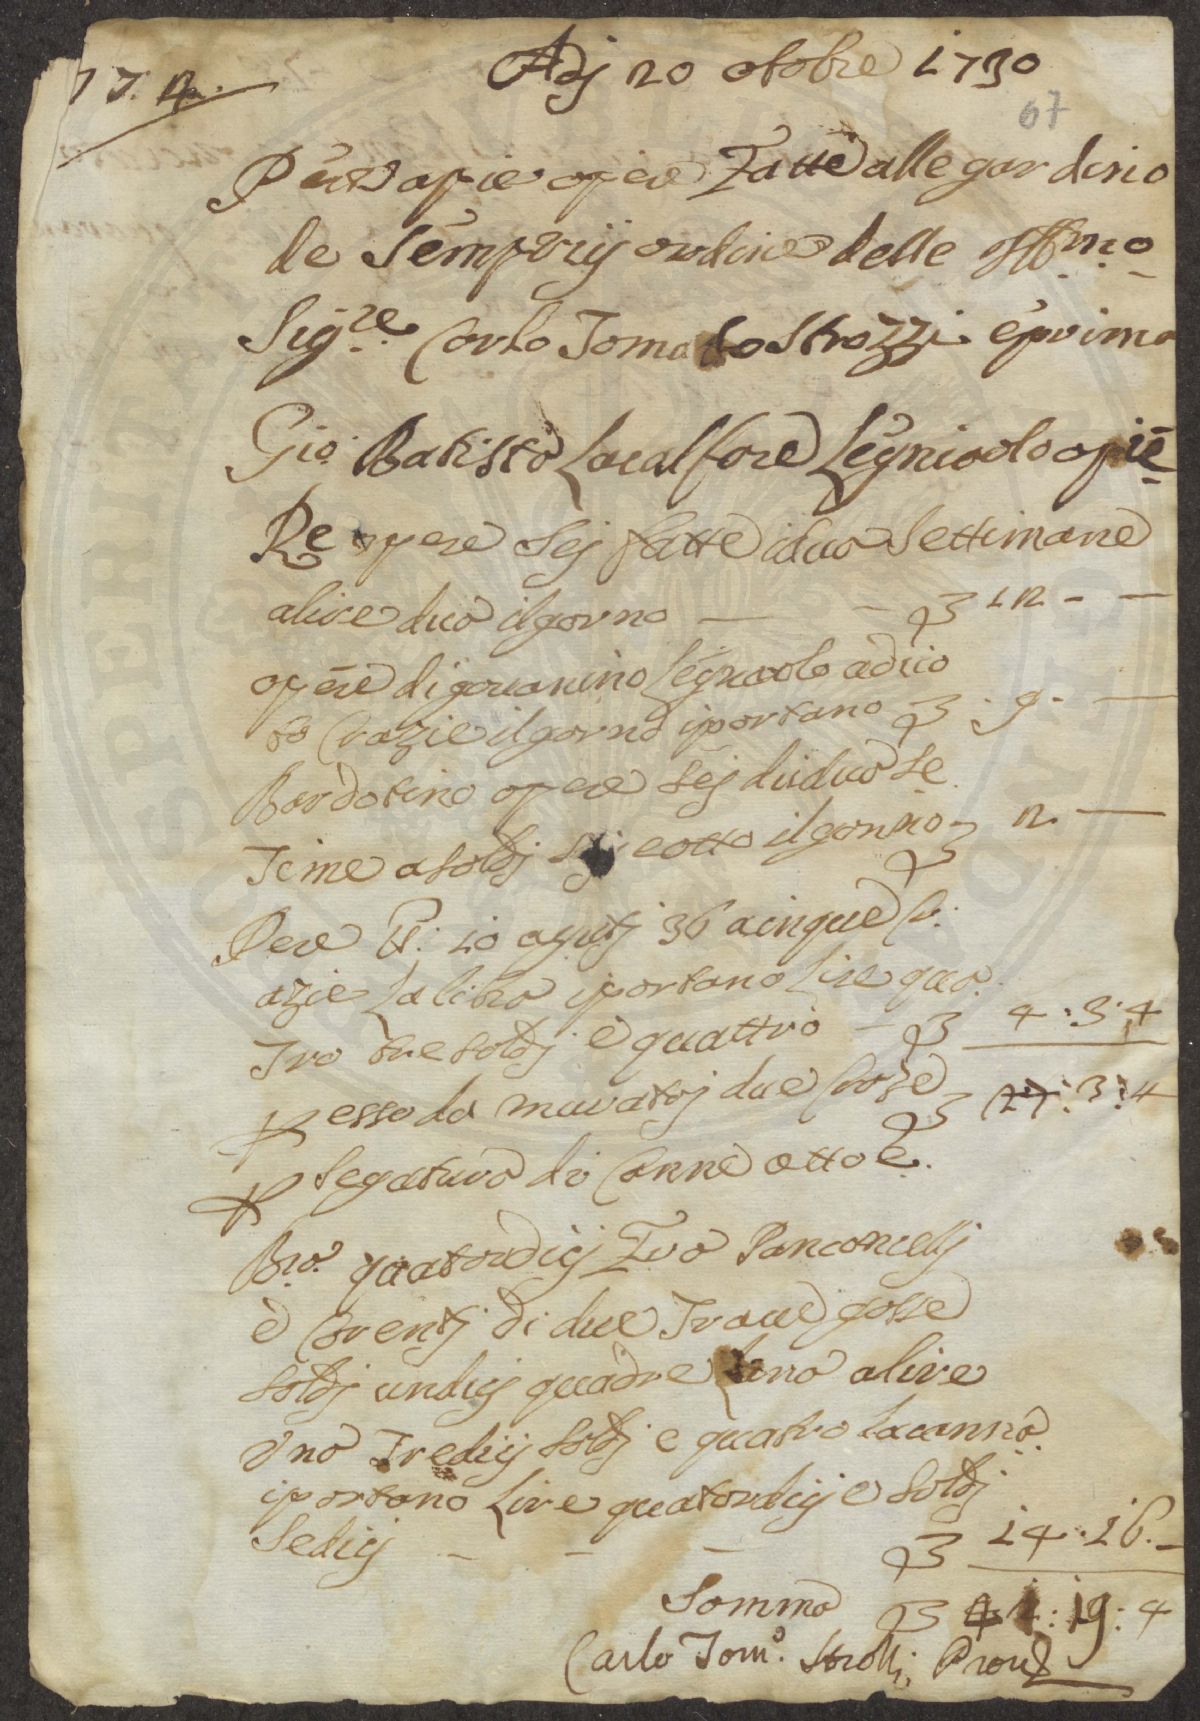 Adj 20 otobre 1730
67
opere Fatte alle gardino
de Sempricj ordine delle Illmo
Sigre Carlo Tomaso Strozzi e prima
Gio Batista Legniaolo opie
Re opere sej fatte iduo Settimane
alire duo il gorno — — 12 - —
opere di gouanino Legnaolo aduo
to Crazie il gorno iportano 9 —
opere sej di duo se
Time a soldj sej e otto il gorno 2 —
Pere 10 aguti 36 a cinque Cr:
azie la libra iportano Lire qua
Tro tre soldj e quattro — 4:3:4
esso da muratoj due Cose 27:3:4
Segatura di Canne otto e
Bra quatordicj Fra Panconcellj
e Corentj di due Traue gosse
Soldj undicj quadre Luna a lire
Una Tredicj Soldj e quatro la canna
iportano Lire quatordicj e Soldj
Sedicj — — — 14:16. -
Somma 41:19:4
Carlo Tomo. Strozzi, Prou